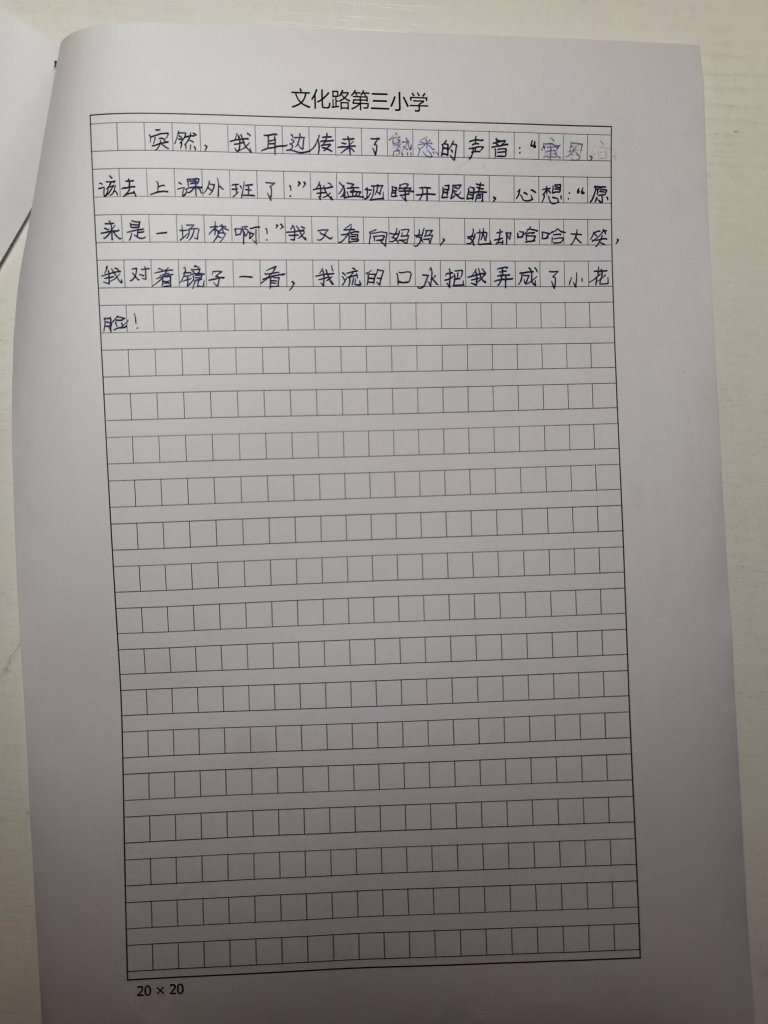 文化路第三小学
突然，我耳边传来了熟悉的声音：“宝贝，
该去上课外班了！”我猛地睁开眼睛，心想：“原
来是一场梦啊！”我又看向妈妈，她却哈哈大笑，
我对着镜子一看，我流的口水把我弄成了小花
脸！
20 × 20